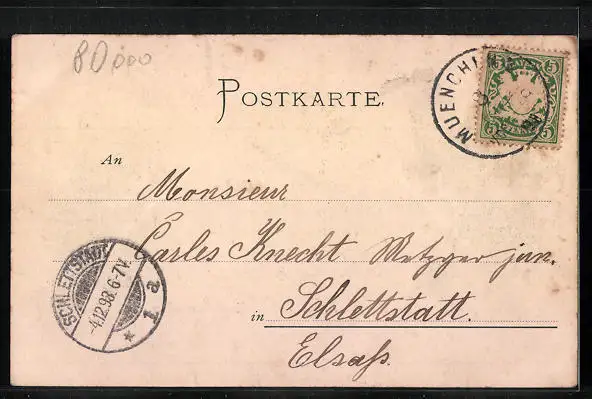 80000
POSTKARTE.
MUENCHEN
5 5
5 5
An
Monsieur
Carles Knecht Metzger jun.
SCHLETTSTADT
-4.12.98.6-7V.
* 1 a
in Schlettstatt.
Elsaß.